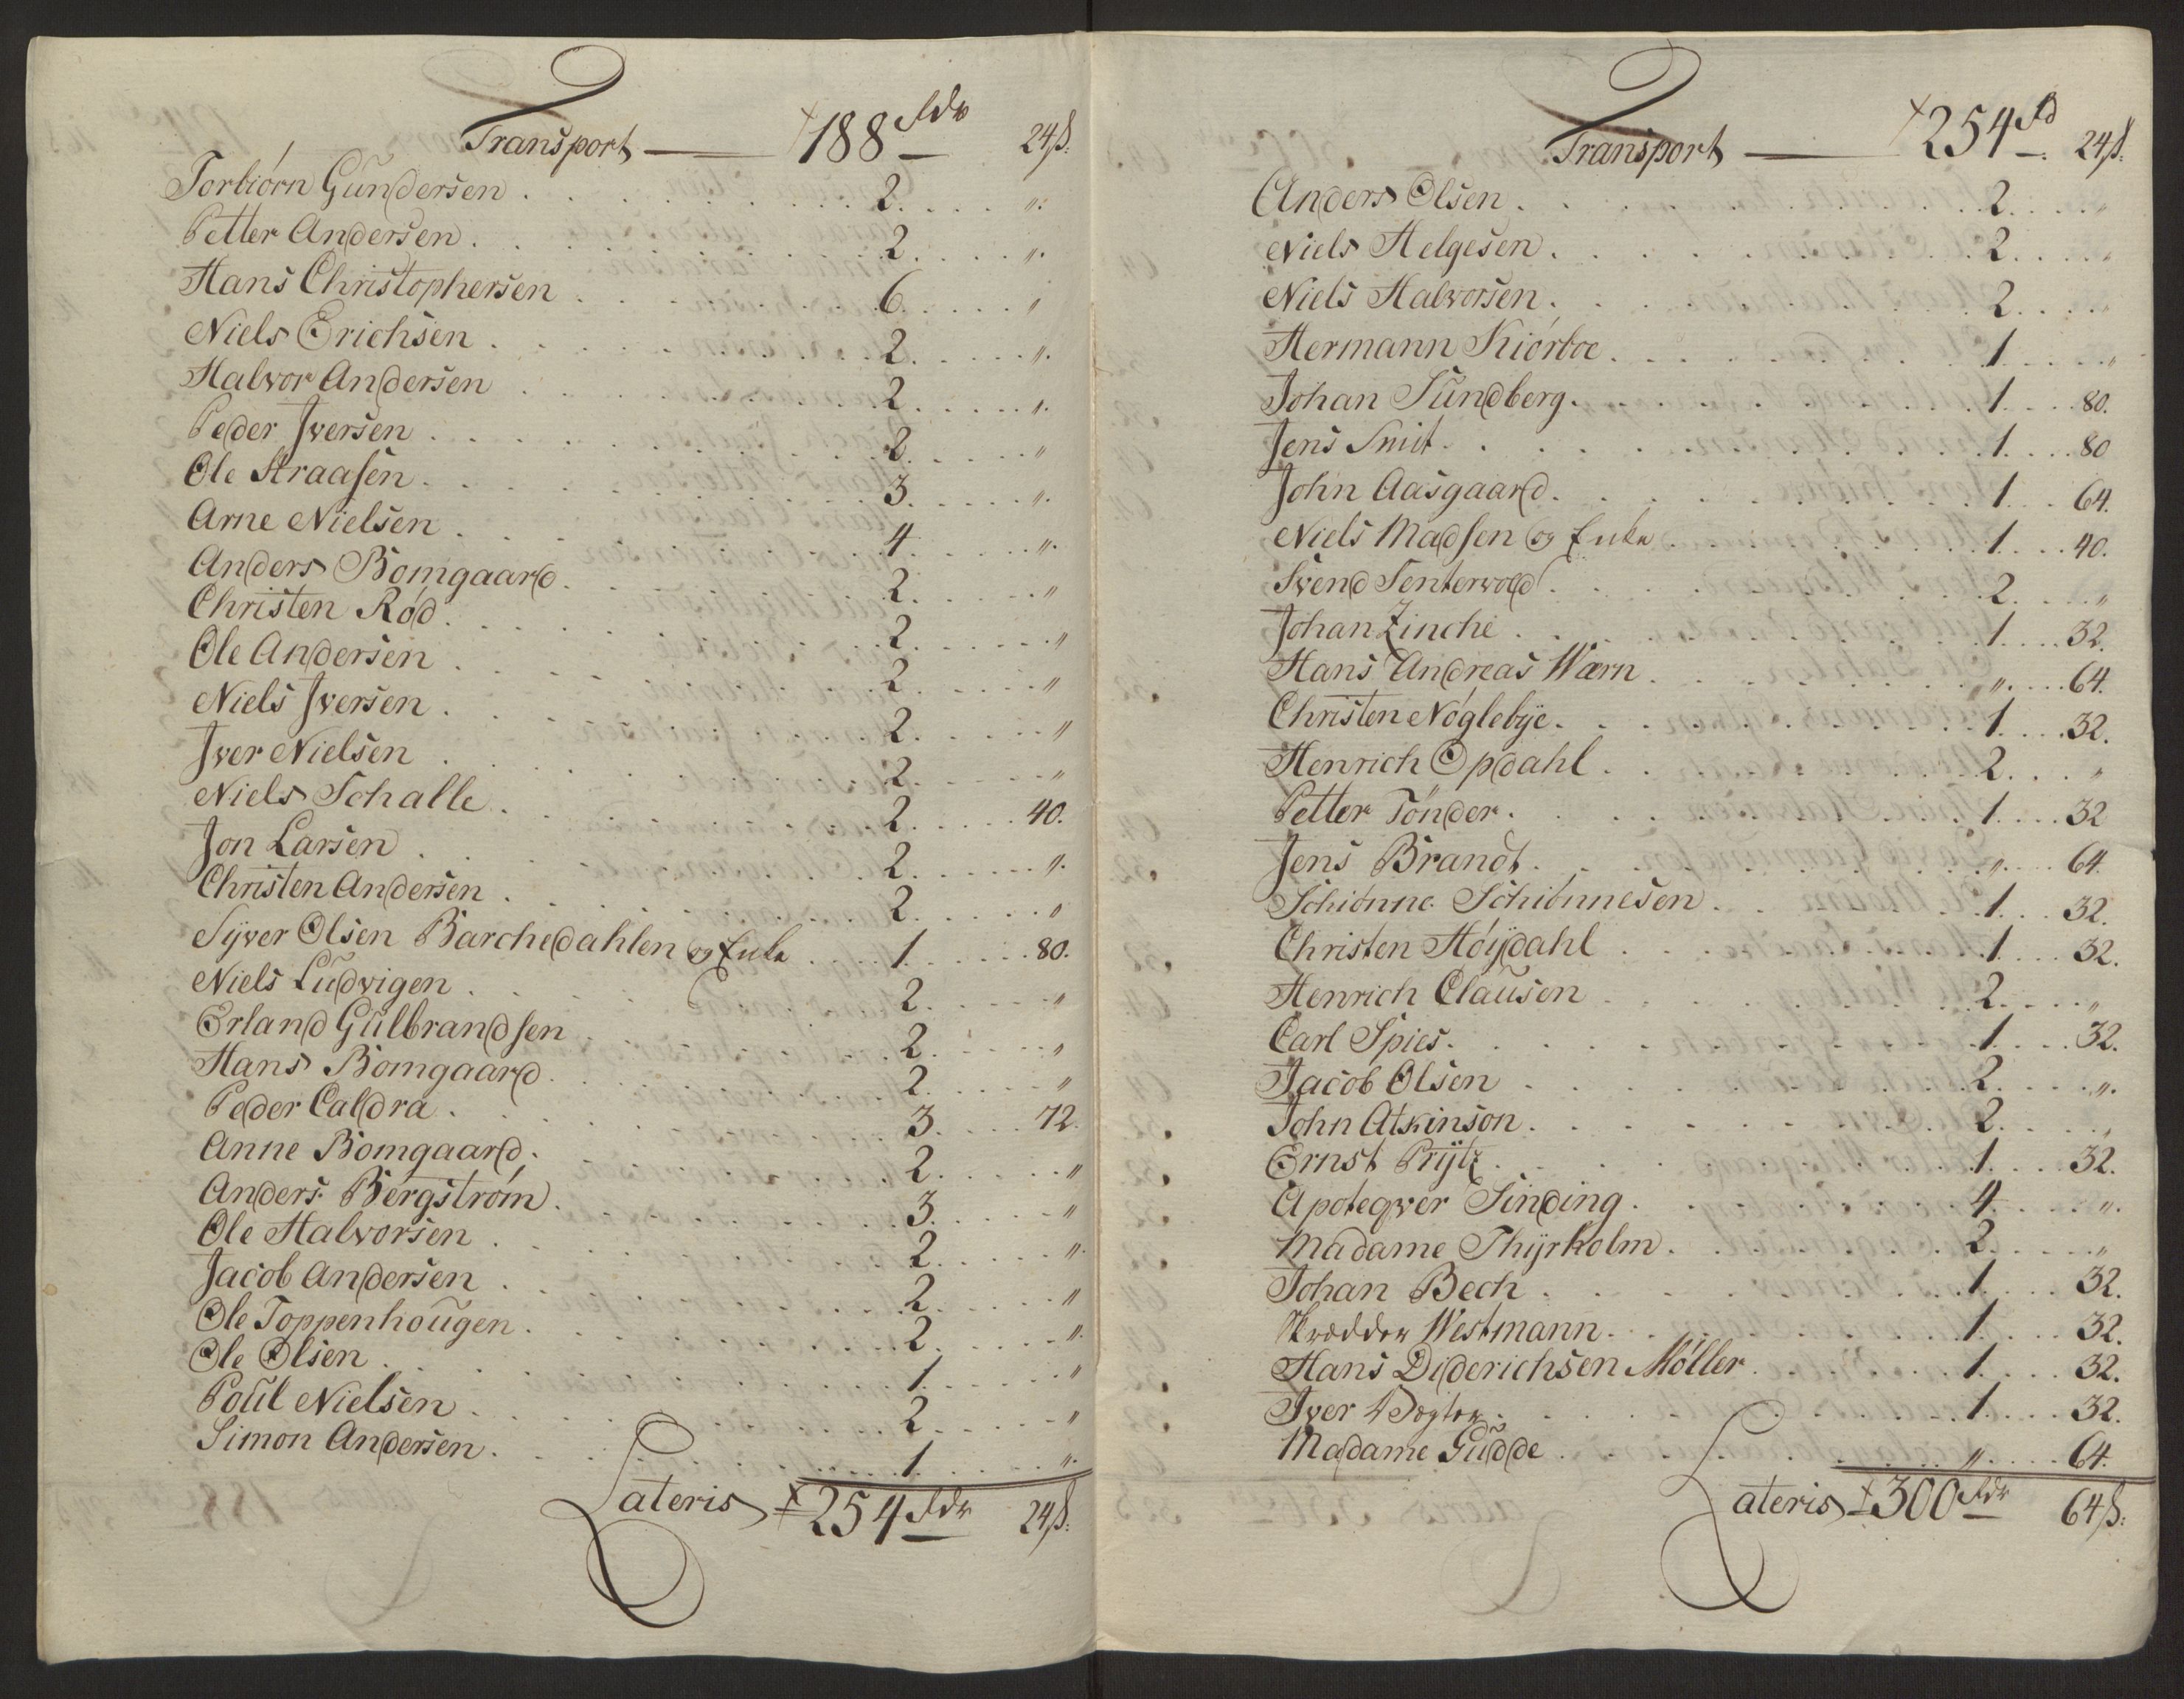 Transport — 188 Rdr 24 ß.
Torbiørn Gundersen . . . 2. . . . ".
Petter Andersen . . . 2. . . . ".
Hans Christophersen . . . 6. . . . "
Niels Erichsen . . . 2. . . . ".
Halvor Andersen . . . 2. . . . ".
Peder Iversen . . . 2. . . . "
Ole Straasen . . . 3. . . . ".
Arne Nielsen . . . 4. . . . ".
Anders Bomgaard . . . 2. . . . "
Christen Rød . . . 2. . . . "
Ole Andersen . . . 2. . . . "
Niels Iversen . . . 2. . . . "
Iver Nielsen . . . 2. . . . "
Niels Schalle . . . 2. . . . 40.
Jon Larsen . . . 2. . . . ".
Christen Andersen . . . 2. . . . "
Syver Olsen Barchedahlen og Enke . . . 1. . . . 80.
Niels Ludvigen . . . 2. . . . "
Erland Gulbrandsen . . . 2. . . . "
Hans Bomgaard . . . 2. . . . "
Peder Caldra . . . 3. . . . 72.
Anne Bomgaard . . . 2. . . . "
Anders Bergstrøm . . . 3. . . . "
Ole Halvorsen . . . 2. . . . ".
Jacob Andersen . . . 2. . . . "
Ole Toppenhougen . . . 2. . . . ".
Ole Olsen . . . 1. . . . "
Poul Nielsen . . . 2. . . . "
Simon Andersen . . . 1. . . . ".
Lateris 254 Rdr 24 ß.
Transport — 254 Rd 24 ß.
Anders Olsen . . . 2. . . . "
Niels Helgesen . . . 2. . . . "
Niels Halvorsen . . . 2. . . . "
Hermann Kiørboe . . . 1. . . . "
Johan Sundberg . . . 1. . . . 80.
Jens Smit . . . 1. . . . 80
John Aasgaard . . . 1. . . . 64.
Niels Madsen og Enke . . . 1. . . . 40.
Svend Tenterwold . . . 2. . . . "
Johan Zinche . . . 1. . . . 32.
Hans Andreas Wærn . . . ". . . . 64.
Christen Nøglebye . . . 1. . . . 32.
Henrich Opdahl . . . 2. . . . "
Petter Tønder . . . 1. . . . 32
Jens Brandt . . . ". . . . 64.
Schiønne Schiønnesen . . . 1. . . . 32.
Christen Høydahl . . . 1. . . . 32.
Henrich Clausen . . . 2. . . . "
Carl Spies . . . 1. . . . 32.
Jacob Olsen . . . 2. . . . ".
John Atkinson . . . 2. . . . "
Ernst Prytz . . . 1. . . . 32.
Apoteqver Sinding . . . 4. . . . ".
Madame Thyrholm . . . 2. . . . "
Johan Bech . . . 1. . . . 32.
Skrædder Westmann . . . 1. . . . 32.
Hans Diderichsen Møller . . . 1. . . . 32.
Iver . . . 1. . . . 32.
Madame Gudde . . . ". . . . 64.
Lateris 300 Rdr 64 ß.